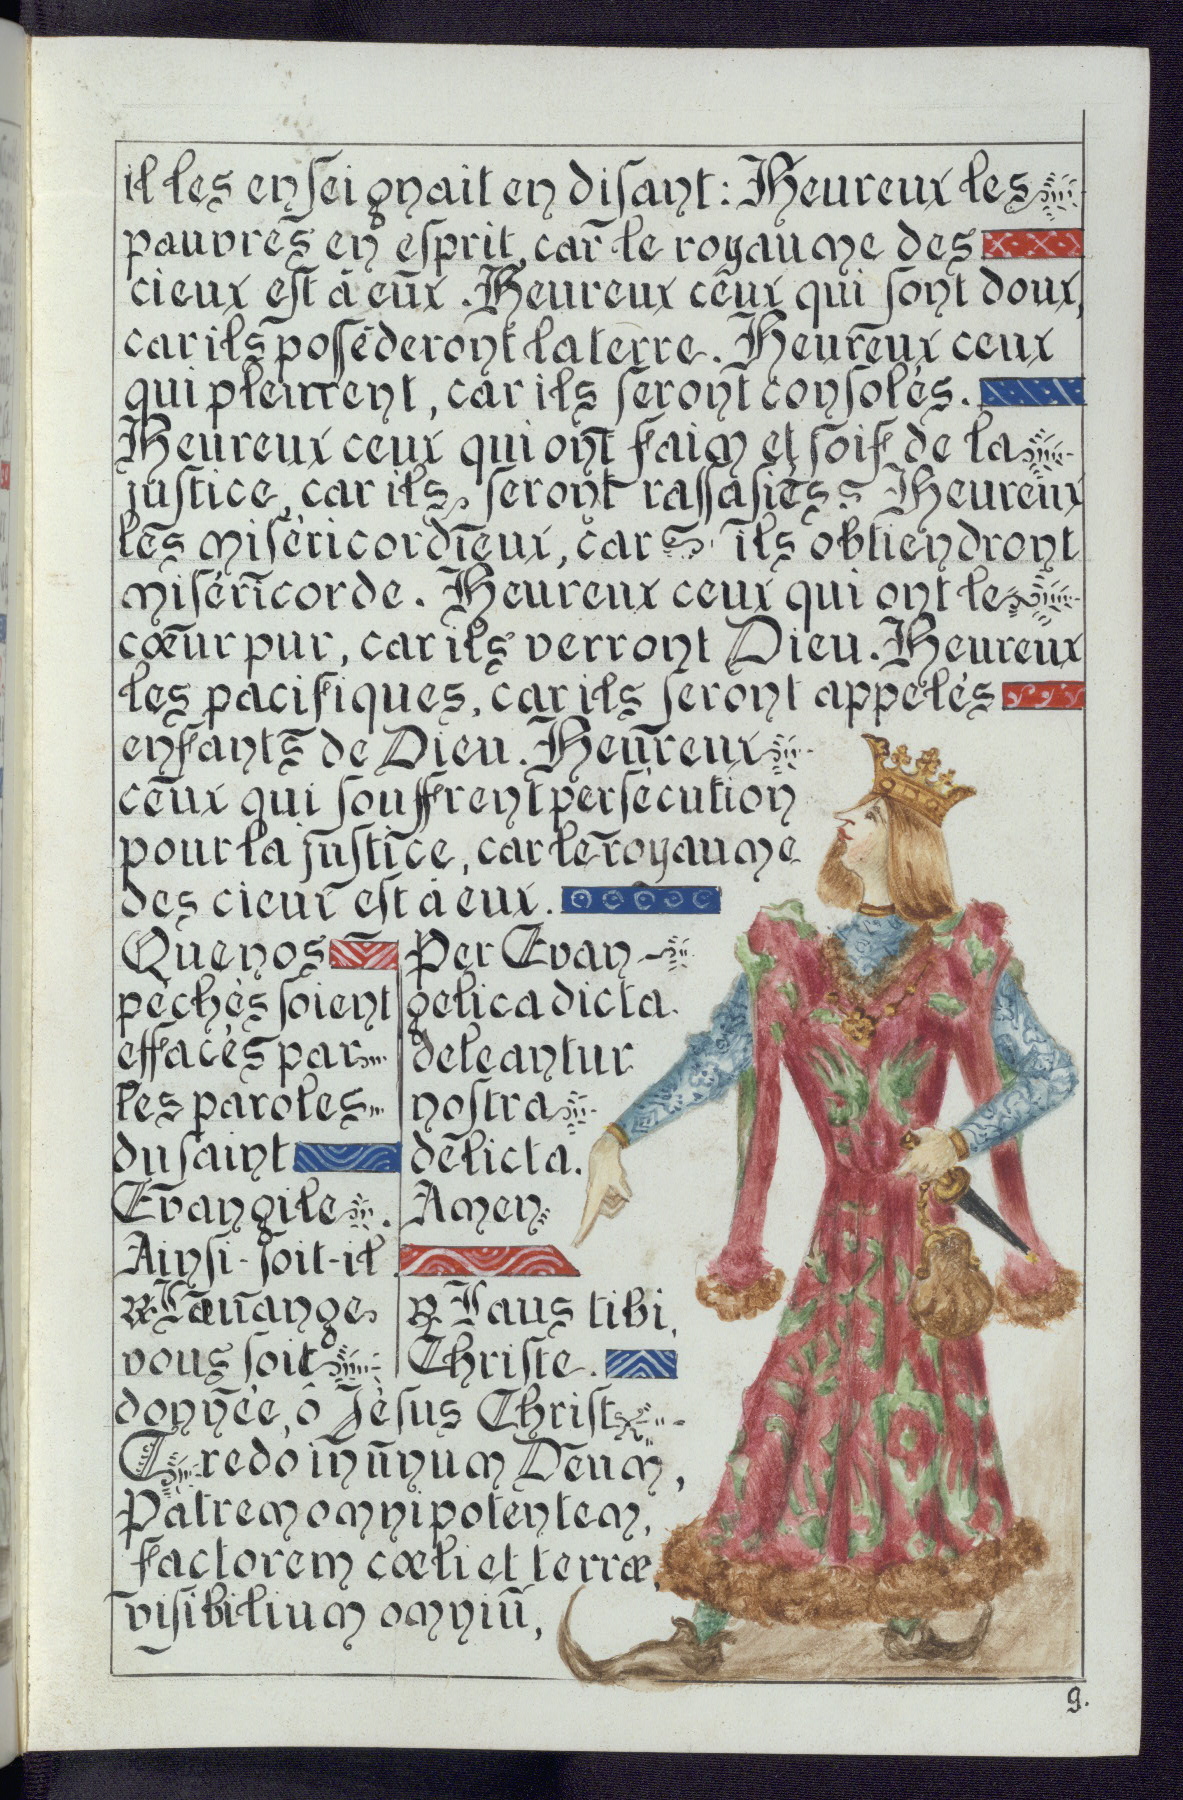 il les enseignait en disant: Heureux les
pauvres en esprit, car le royaume des
cieux est à eux. Heureux ceux qui sont doux,
car ils posséderont la terre. Heureux ceux
qui pleurent, car ils seront consolés.
Heureux ceux qui ont faim et soif de la
justice, car ils seront rassasiés. Heureux
les miséricordieux, car ils obtiendront
miséricorde. Heureux ceux qui ont le
cœur pur, car ils verront Dieu. Heureux
les pacifiques, car ils seront appelés
enfants de Dieu. Heureux
ceux qui souffrent persécution
pour la justice, car le royaume
des cieux est à eux.
Que nos
péchés soient
effacés par
les paroles
du saint
Evangile.
Ainsi-soit-il.
℟ Louange
vous soit
Per Evan-
gelica dicta.
deleantur
nostra
delicta.
Amen
℟ Laus tibi,
Christe.
donnée, ô Jésus Christ
Credo in unum Deum,
Patrem omnipotentem,
factorem cœli et terræ,
visibilium omniū,
9.